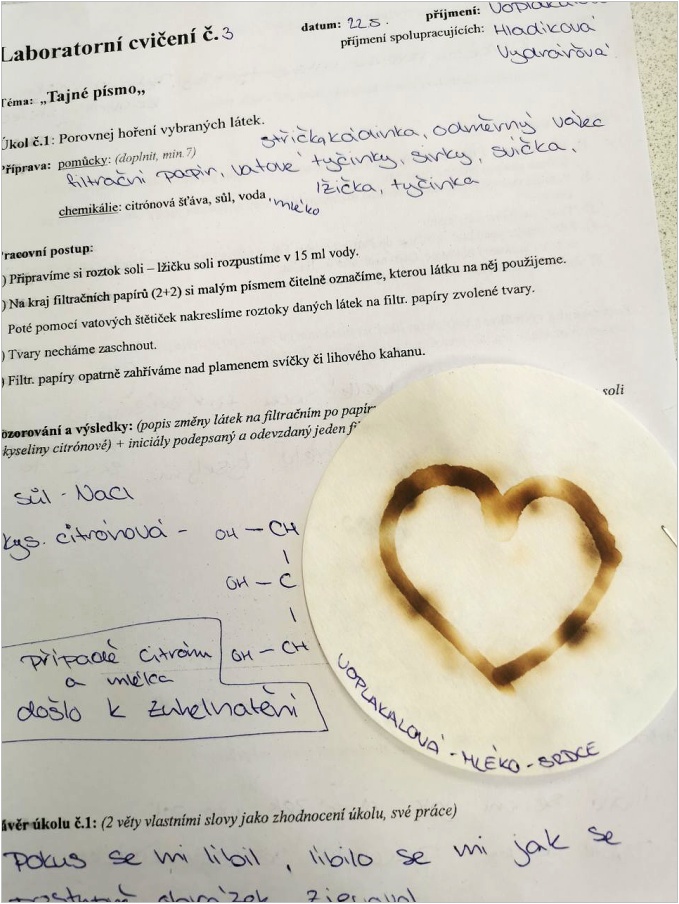 Laboratorní cvičení č.3
datum: 22.5. příjmení:
příjmení spolupracujících: Hladíková
Vydrářová
Téma: „Tajné písmo„
Úkol č.1: Porovnej hoření vybraných látek.
Příprava: pomůcky: (doplnit, min.7) střička, kádinka, odměrný válec
filtrační papír, vatové tyčinky, sirky, svíčka,
lžička, tyčinka
chemikálie: citrónová šťáva, sůl, voda, mléko
Pracovní postup:
) Připravíme si roztok soli – lžičku soli rozpustíme v 15 ml vody.
) Na kraj filtračních papírů (2+2) si malým písmem čitelně označíme, kterou látku na něj použijeme.
Poté pomocí vatových štětiček nakreslíme roztoky daných látek na filtr. papíry zvolené tvary.
) Tvary necháme zaschnout.
) Filtr. papíry opatrně zahříváme nad plamenem svíčky či lihového kahanu.
ozorování a výsledky: (popis změny látek na filtračním po papír soli
kyseliny citrónové) + iniciály podepsaný a odevzdaný jeden fi
sůl - NaCl
kys. citrónová - OH - CH
OH - C
OH - CH
případě citrónu
a mléka
došlo k zuhelnatění
VOPLAKALOVÁ - MLÉKO - SRDCE
ávěr úkolu č.1: (2 věty vlastními slovy jako zhodnocení úkolu, své práce)
Pokus se mi líbil, líbilo se mi jak se